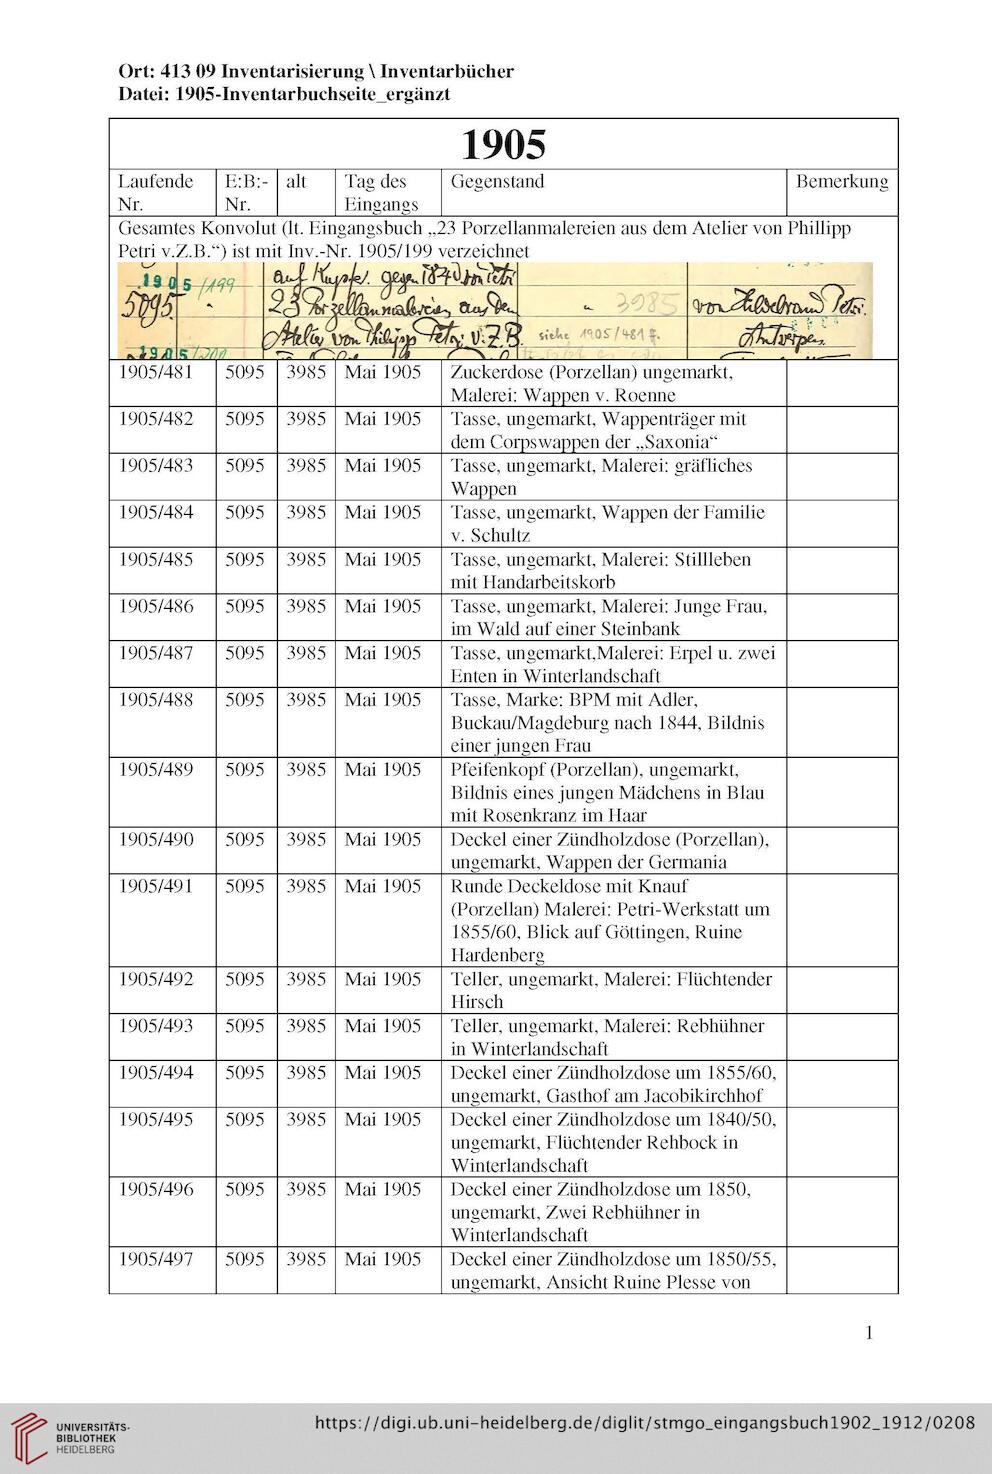 Ort: 413 09 Inventarisierung \ Inventarbücher
Datei: 1905-Inventarbuchseite_ergänzt
1905
Laufende Nr. E:B:-Nr. alt Tag des Eingangs Gegenstand Bemerkung
Gesamtes Konvolut (lt. Eingangsbuch „23 Porzellanmalereien aus dem Atelier von Phillipp
Petri v.Z.B.“) ist mit Inv.-Nr. 1905/199 verzeichnet
1905/199 auf Kupfer. gegen 1840 von Petri
5095. " 23 Porzellanmalereien aus dem " 3985 von Hildebrand Petri.
Atelier von Philipp Petri v.Z.B. siehe 1905/481 ff. Antwerpen.
1905/200
1905/481 5095 3985 Mai 1905 Zuckerdose (Porzellan) ungemarkt,
Malerei: Wappen v. Roenne
1905/482 5095 3985 Mai 1905 Tasse, ungemarkt, Wappenträger mit
dem Corpswappen der „Saxonia“
1905/483 5095 3985 Mai 1905 Tasse, ungemarkt, Malerei: gräfliches
Wappen
1905/484 5095 3985 Mai 1905 Tasse, ungemarkt, Wappen der Familie
v. Schultz
1905/485 5095 3985 Mai 1905 Tasse, ungemarkt, Malerei: Stillleben
mit Handarbeitskorb
1905/486 5095 3985 Mai 1905 Tasse, ungemarkt, Malerei: Junge Frau,
im Wald auf einer Steinbank
1905/487 5095 3985 Mai 1905 Tasse, ungemarkt,Malerei: Erpel u. zwei
Enten in Winterlandschaft
1905/488 5095 3985 Mai 1905 Tasse, Marke: BPM mit Adler,
Buckau/Magdeburg nach 1844, Bildnis
einer jungen Frau
1905/489 5095 3985 Mai 1905 Pfeifenkopf (Porzellan), ungemarkt,
Bildnis eines jungen Mädchens in Blau
mit Rosenkranz im Haar
1905/490 5095 3985 Mai 1905 Deckel einer Zündholzdose (Porzellan),
ungemarkt, Wappen der Germania
1905/491 5095 3985 Mai 1905 Runde Deckeldose mit Knauf
(Porzellan) Malerei: Petri-Werkstatt um
1855/60, Blick auf Göttingen, Ruine
Hardenberg
1905/492 5095 3985 Mai 1905 Teller, ungemarkt, Malerei: Flüchtender
Hirsch
1905/493 5095 3985 Mai 1905 Teller, ungemarkt, Malerei: Rebhühner
in Winterlandschaft
1905/494 5095 3985 Mai 1905 Deckel einer Zündholzdose um 1855/60,
ungemarkt, Gasthof am Jacobikirchhof
1905/495 5095 3985 Mai 1905 Deckel einer Zündholzdose um 1840/50,
ungemarkt, Flüchtender Rehbock in
Winterlandschaft
1905/496 5095 3985 Mai 1905 Deckel einer Zündholzdose um 1850,
ungemarkt, Zwei Rebhühner in
Winterlandschaft
1905/497 5095 3985 Mai 1905 Deckel einer Zündholzdose um 1850/55,
ungemarkt, Ansicht Ruine Plesse von
1
UNIVERSITÄTS-
BIBLIOTHEK
HEIDELBERG
https://digi.ub.uni-heidelberg.de/diglit/stmgo_eingangsbuch1902_1912/0208